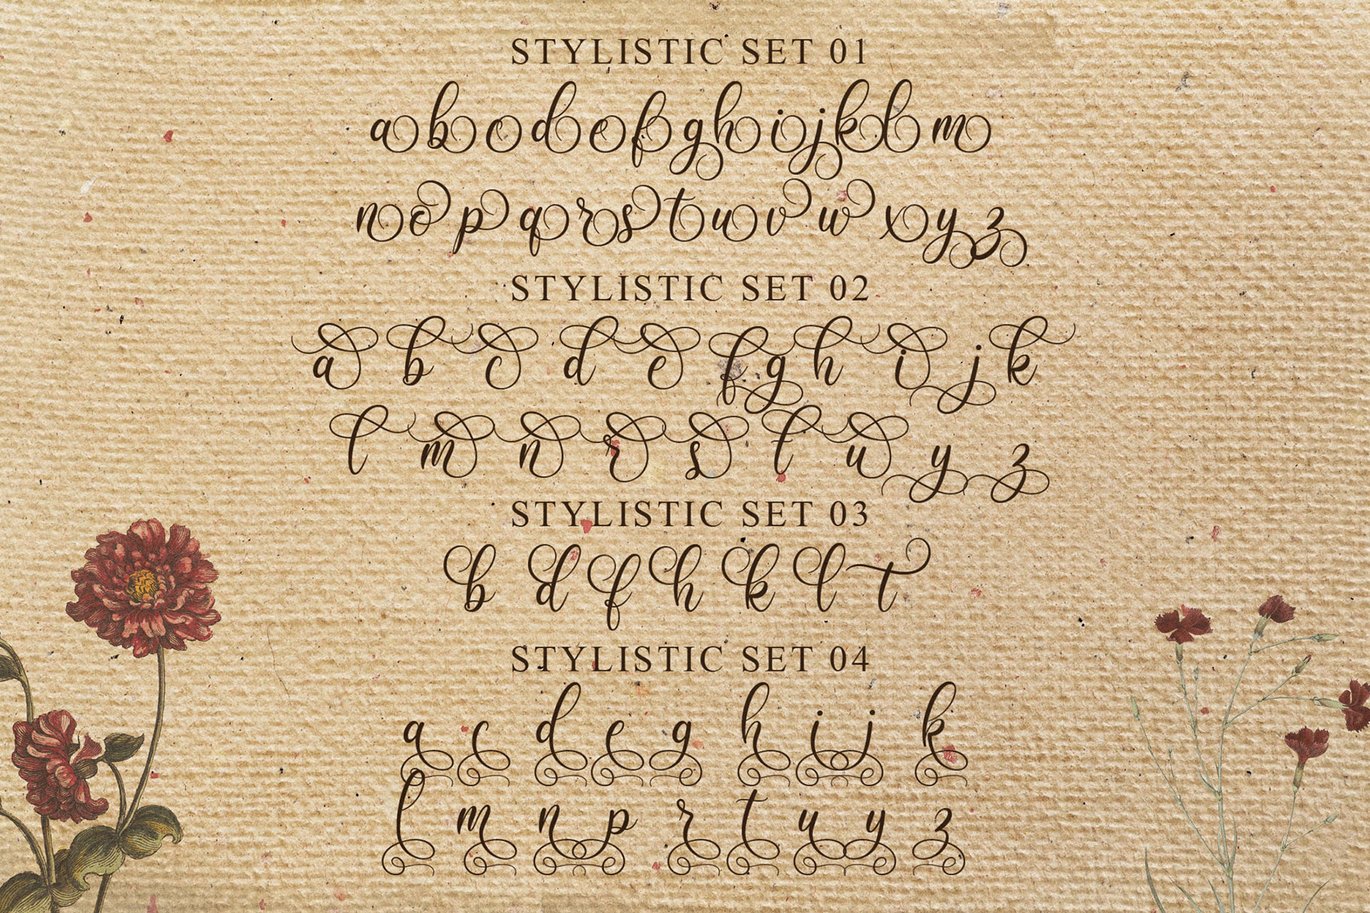 STYLISTIC SET 01
a b c d e f g h i j k l m
n o p q r s t u v w x y z
STYLISTIC SET 02
a b c d e f g h i j k
l m n r s t u y z
STYLISTIC SET 03
b d f h k l t
STYLISTIC SET 04
a c d e g h i j k
l m n p r t u y z